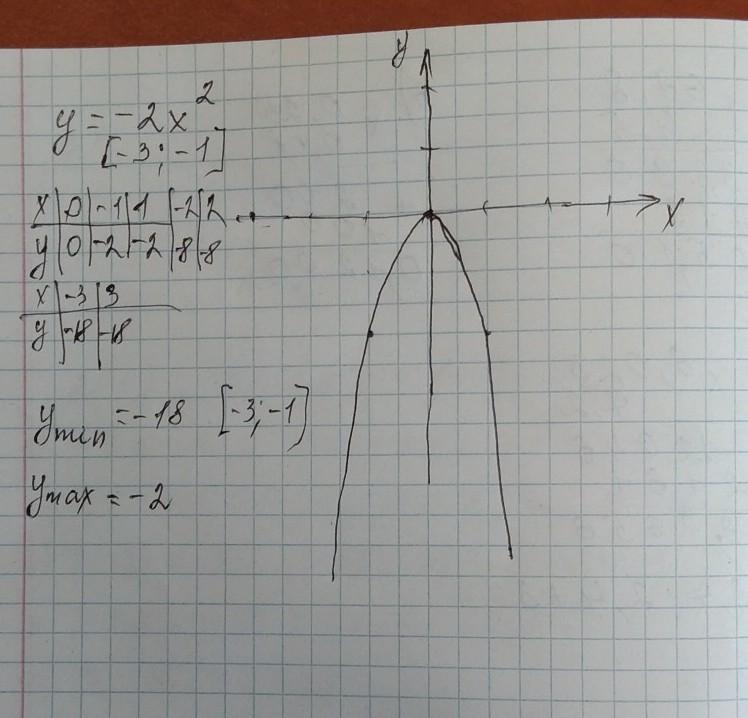 y = -2x²
[-3; -1]
x | 0 | -1 | 1 | -2 | 2
y | 0 | -2 | -2 | -8 | -8
x | -3 | 3
y | -18 | -18
ymin = -18 [-3; -1]
ymax = -2
y
x